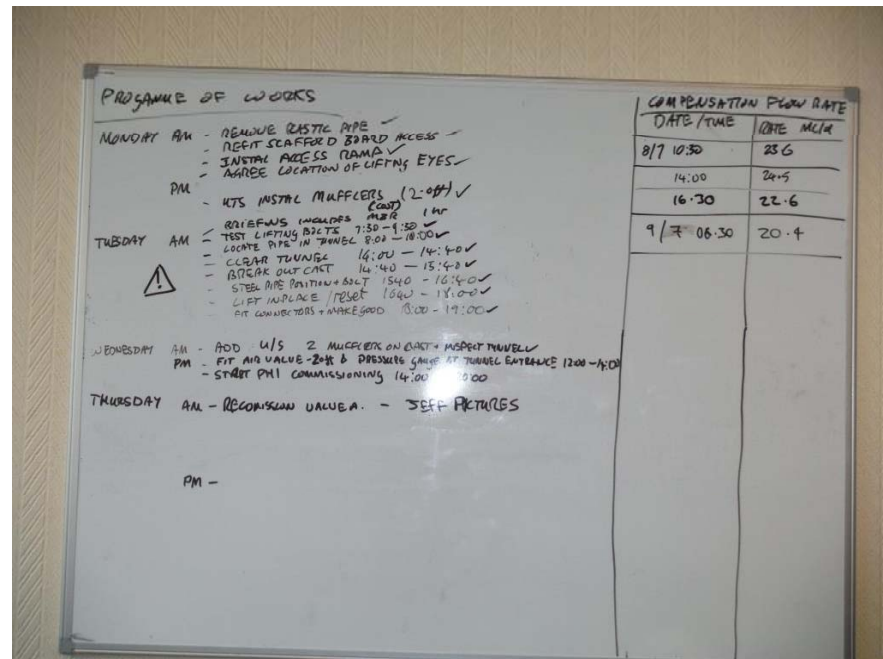 PROGAMME OF WORKS
MONDAY AM - REMOVE PLASTIC PIPE ✓
- REFIT SCAFFOLD BOARD ACCESS ✓
- INSTAL ACCESS RAMP ✓
- AGREE LOCATION OF LIFTING EYES ✓
PM
- UTS INSTAL MUFFLERS (2-off) ✓
(CAST)
- BRIEFING INCLUDES 1 hr
TUESDAY AM - TEST LIFTING BOLTS 7:30 - 9:30 ✓
- LOCATE PIPE IN TUNNEL 8:00 - 10:00 ✓
- CLEAR TUNNEL 14:00 - 14:40 ✓
- BREAK OUT CAST 14:40 - 15:40 ✓
- STEEL PIPE POSITION + BOLT 1540 - 16:40 ✓
- LIFT IN PLACE / reset 1640 - 18:00 ✓
- FIT CONNECTORS + MAKE GOOD 18:00 - 19:00 ✓
WEDNESDAY AM - ADD U/S 2 MUFFLERS ON CAST + INSPECT TUNNEL ✓
PM - FIT AIR VALVE - 2off & PRESSURE GAUGE AT TUNNEL ENTRANCE 1200 - 14:00
- START PM1 COMMISSIONING 14:00
THURSDAY AM - RECOMISSION VALVE A. - JEFF PICTURES
PM -
COMPENSATION FLOW RATE
DATE/TIME RATE Ml/d
8/7 10:30 23.6
14:00 24.5
16.30 22.6
9/7 06.30 20.4